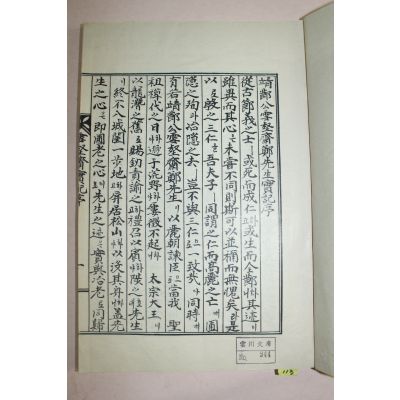 靖節公雲壑齋鄭先生實記序
從古節義之士ㅣ或死而成仁며或生而全節하니其迹은
雖異而其心은未嘗不同則斯可以並稱而無愧矣라是
以로殷之三仁을吾夫子ㅣ同謂之仁而高麗之亡에圃
隱之殉과冶隱之去ㅣ豈不與三仁으로一致哉아同時에
有若靖節公雲壑齋鄭先生이以麗朝諫臣으로當我 聖
祖禪代之日하야遯于沱野하야屢徵不起하니 太宗大王이
以龍潛之舊로賜鈞賁諭之하고禮召以賓 先生
이終不入城闉一步地하고屏居松山하야以沒其身하니蓋先
生之心은即圃老之心이오先生之迹은實與冶老로同歸
雲壑齋實記序
一
雲川文庫
113